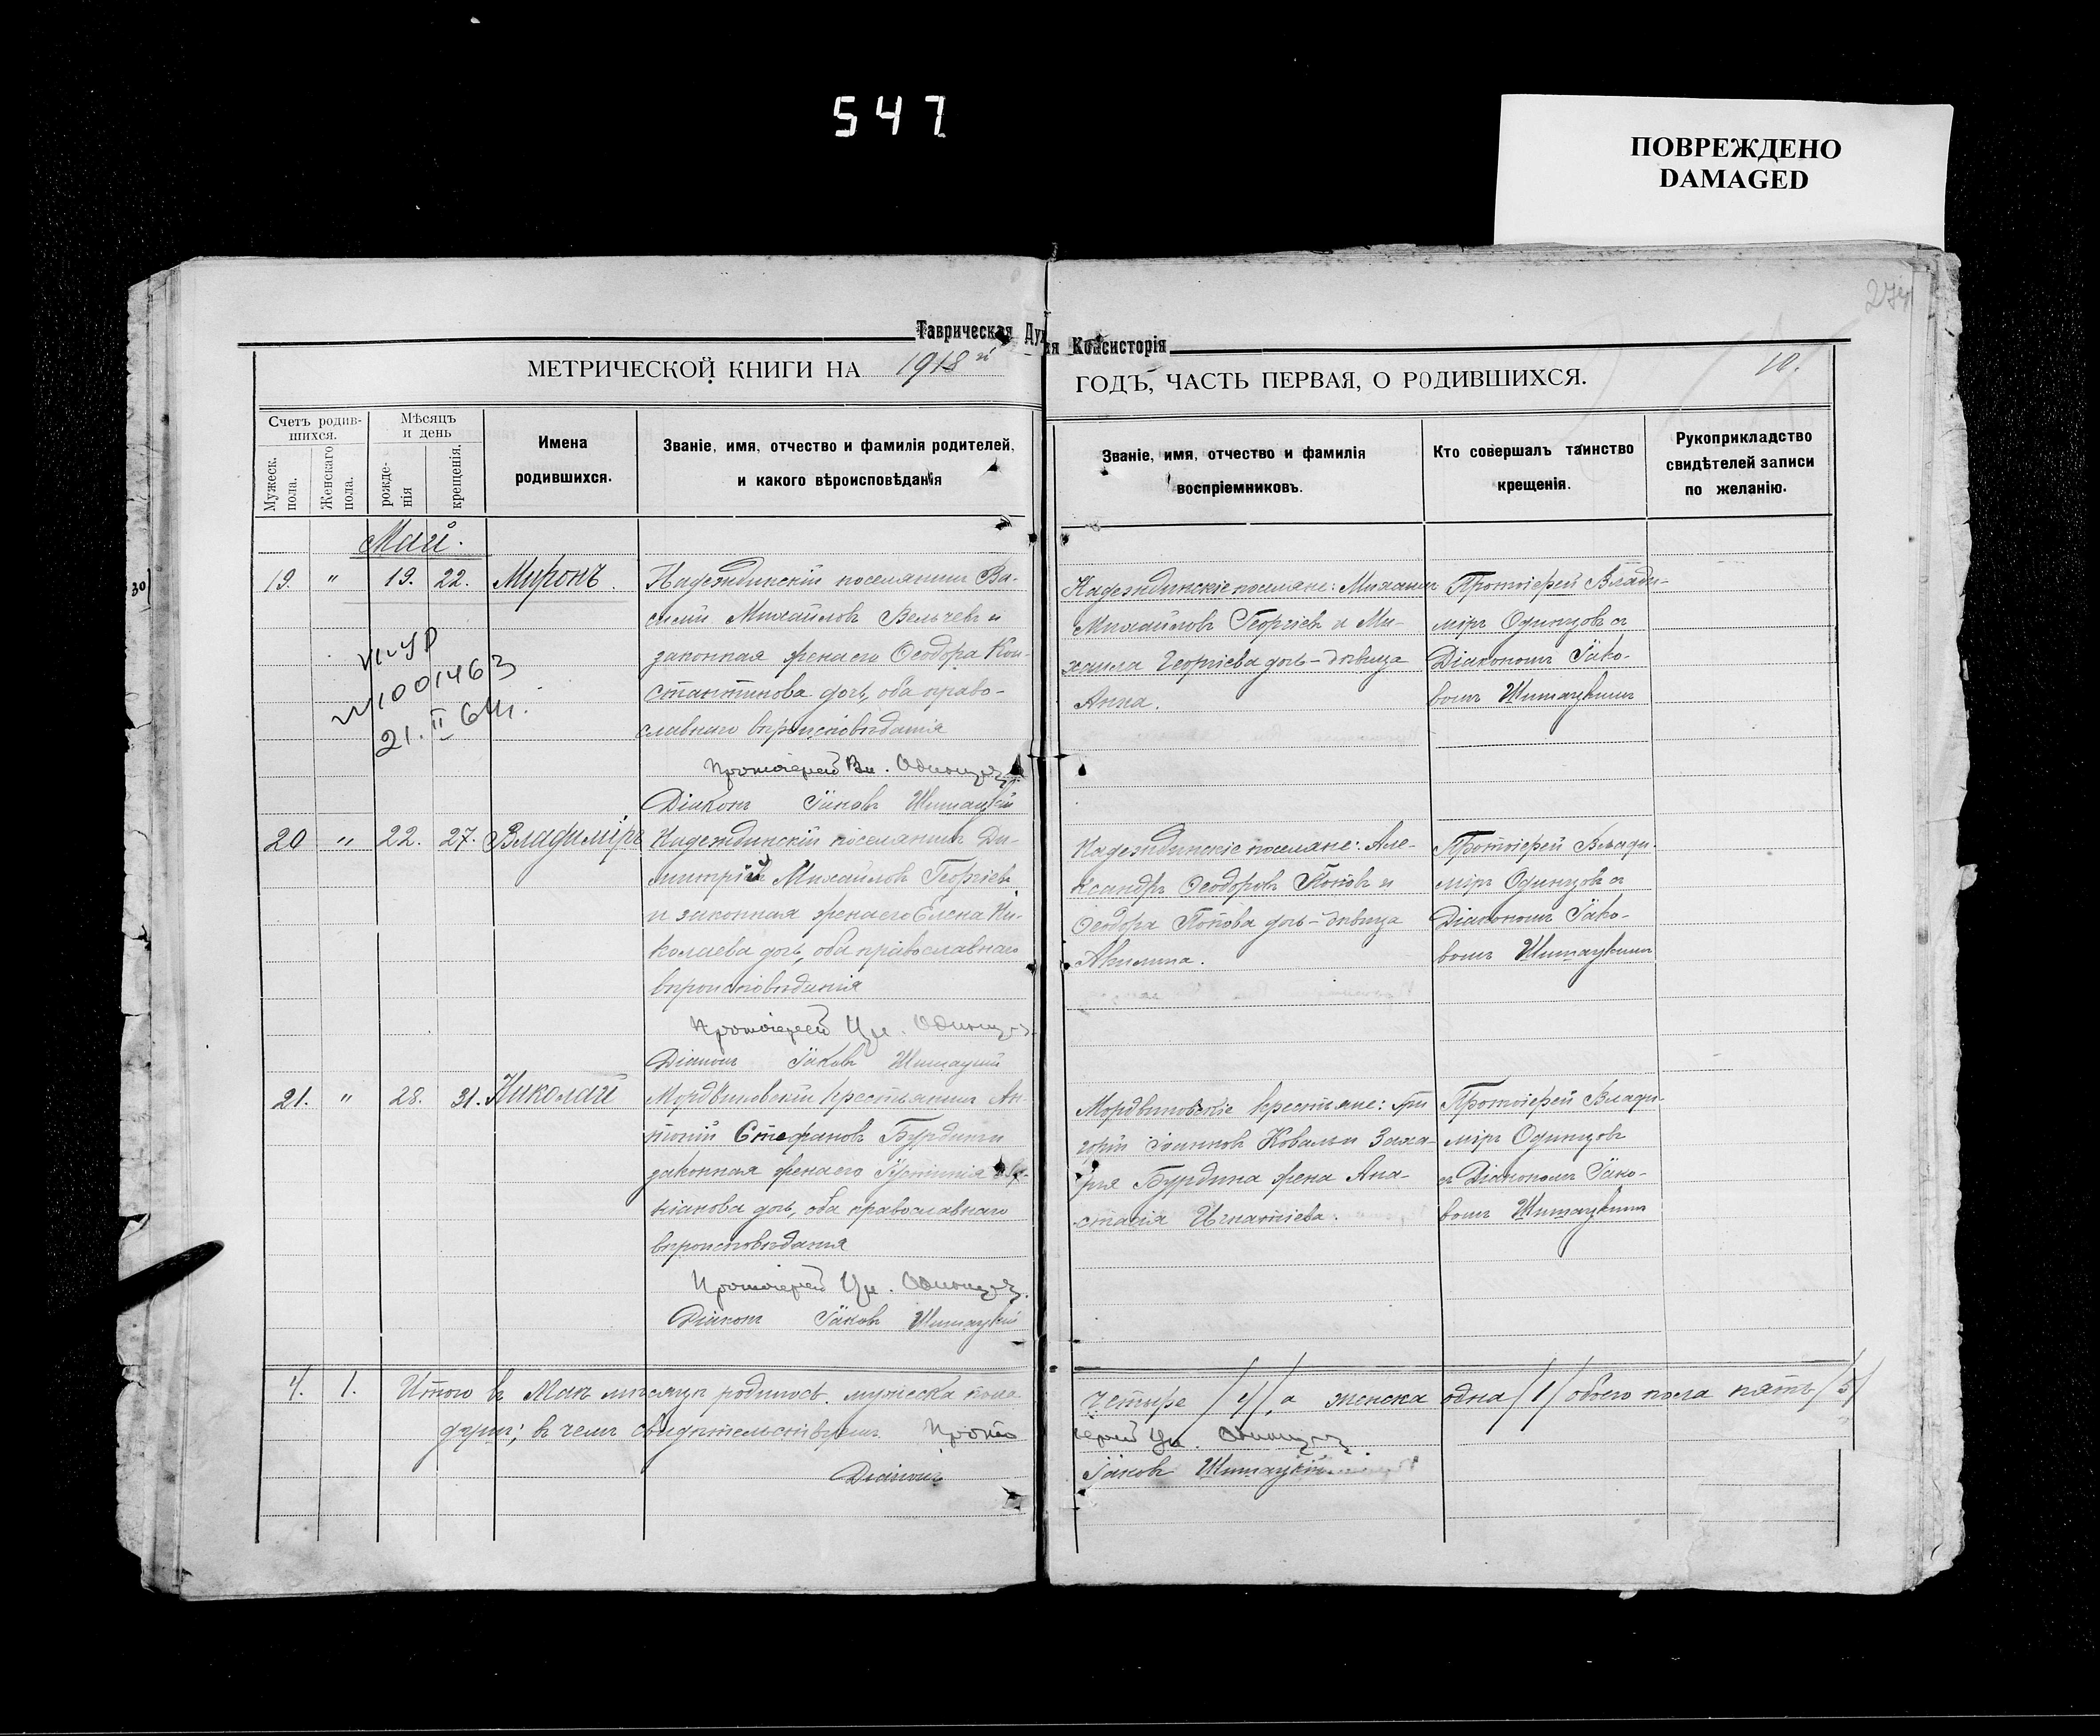 547
ПОВРЕЖДЕНО
DAMAGED
274
Таврическая Духовная Консисторія
МЕТРИЧЕСКОЙ КНИГИ НА 1918й ГОДЪ, ЧАСТЬ ПЕРВАЯ, О РОДИВШИХСЯ.
10.
Счетъ родив-
шихся.
Мужеск.
пола.
Женскаго
пола.
Мѣсяцъ
и день
рожде-
нія
крещенія.
Имена
родившихся.
Званіе, имя, отчество и фамилія родителей,
и какого вѣроисповѣданія
Званіе, имя, отчество и фамилія
воспріемниковъ.
Кто совершалъ таинство
крещенія.
Рукоприкладство
свидѣтелей записи
по желанію.
30
Май.
19. " 19. 22. Миронъ.
Надеждинскій поселянинъ Ва-
силій Михайловъ Вельчевъ и
законная жена его Ѳеодора Кон-
стантинова дочь, оба право-
славнаго вѣроисповѣданія
Протоіерей Вл. Одинцовъ
Діаконъ Іаковъ Шишацкій
1001463
21. II 64г.
Надеждинскіе поселяне: Михаилъ
Михайловъ Георгіевъ и Ми-
хаила Георгіева дочь-дѣвица
Анна.
Протоіерей Влади-
міръ Одинцовъ съ
Діакономъ Іако-
вомъ Шишацкимъ
20 " 22. 27. Владиміръ
Надеждинскій поселянинъ Ди-
митрій Михайловъ Георгіевъ
и законная жена его Елена Ни-
колаева дочь, оба православнаго
вѣроисповѣданія
Протоіерей Вл. Одинцовъ
Діаконъ Іаковъ Шишацкій
Надеждинскіе поселяне: Але-
ксандръ Ѳеодоровъ Поповъ и
Ѳеодора Попова дочь-дѣвица
Акилина.
Протоіерей Влади-
міръ Одинцовъ съ
Діакономъ Іако-
вомъ Шишацкимъ
21. " 28. 31. Николай
Мордвиновскій крестьянинъ Ан-
тоній Стефановъ Бурдинъ и
законная жена его Іустинія
кіанова дочь, оба православнаго
вѣроисповѣданія
Протоіерей Вл. Одинцовъ
Діаконъ Іаковъ Шишацкій
Мордвиновскіе крестьяне: Гри
горій Іоанновъ Коваль и Заха-
рія Бурдина жена Ана-
стасія Игнатіева.
Протоіерей Влади-
міръ Одинцовъ
съ Діакономъ Іако-
вомъ Шишацкимъ
4. 1. Итого въ Маѣ мѣсяцѣ родилось мужеска пола четыре /4/, а женска одна /1/ обоего пола пять /5/
душъ; въ чемъ свидѣтельствуемъ Протоіерей Вл. Одинцовъ
Діаконъ Іаковъ Шишацкій